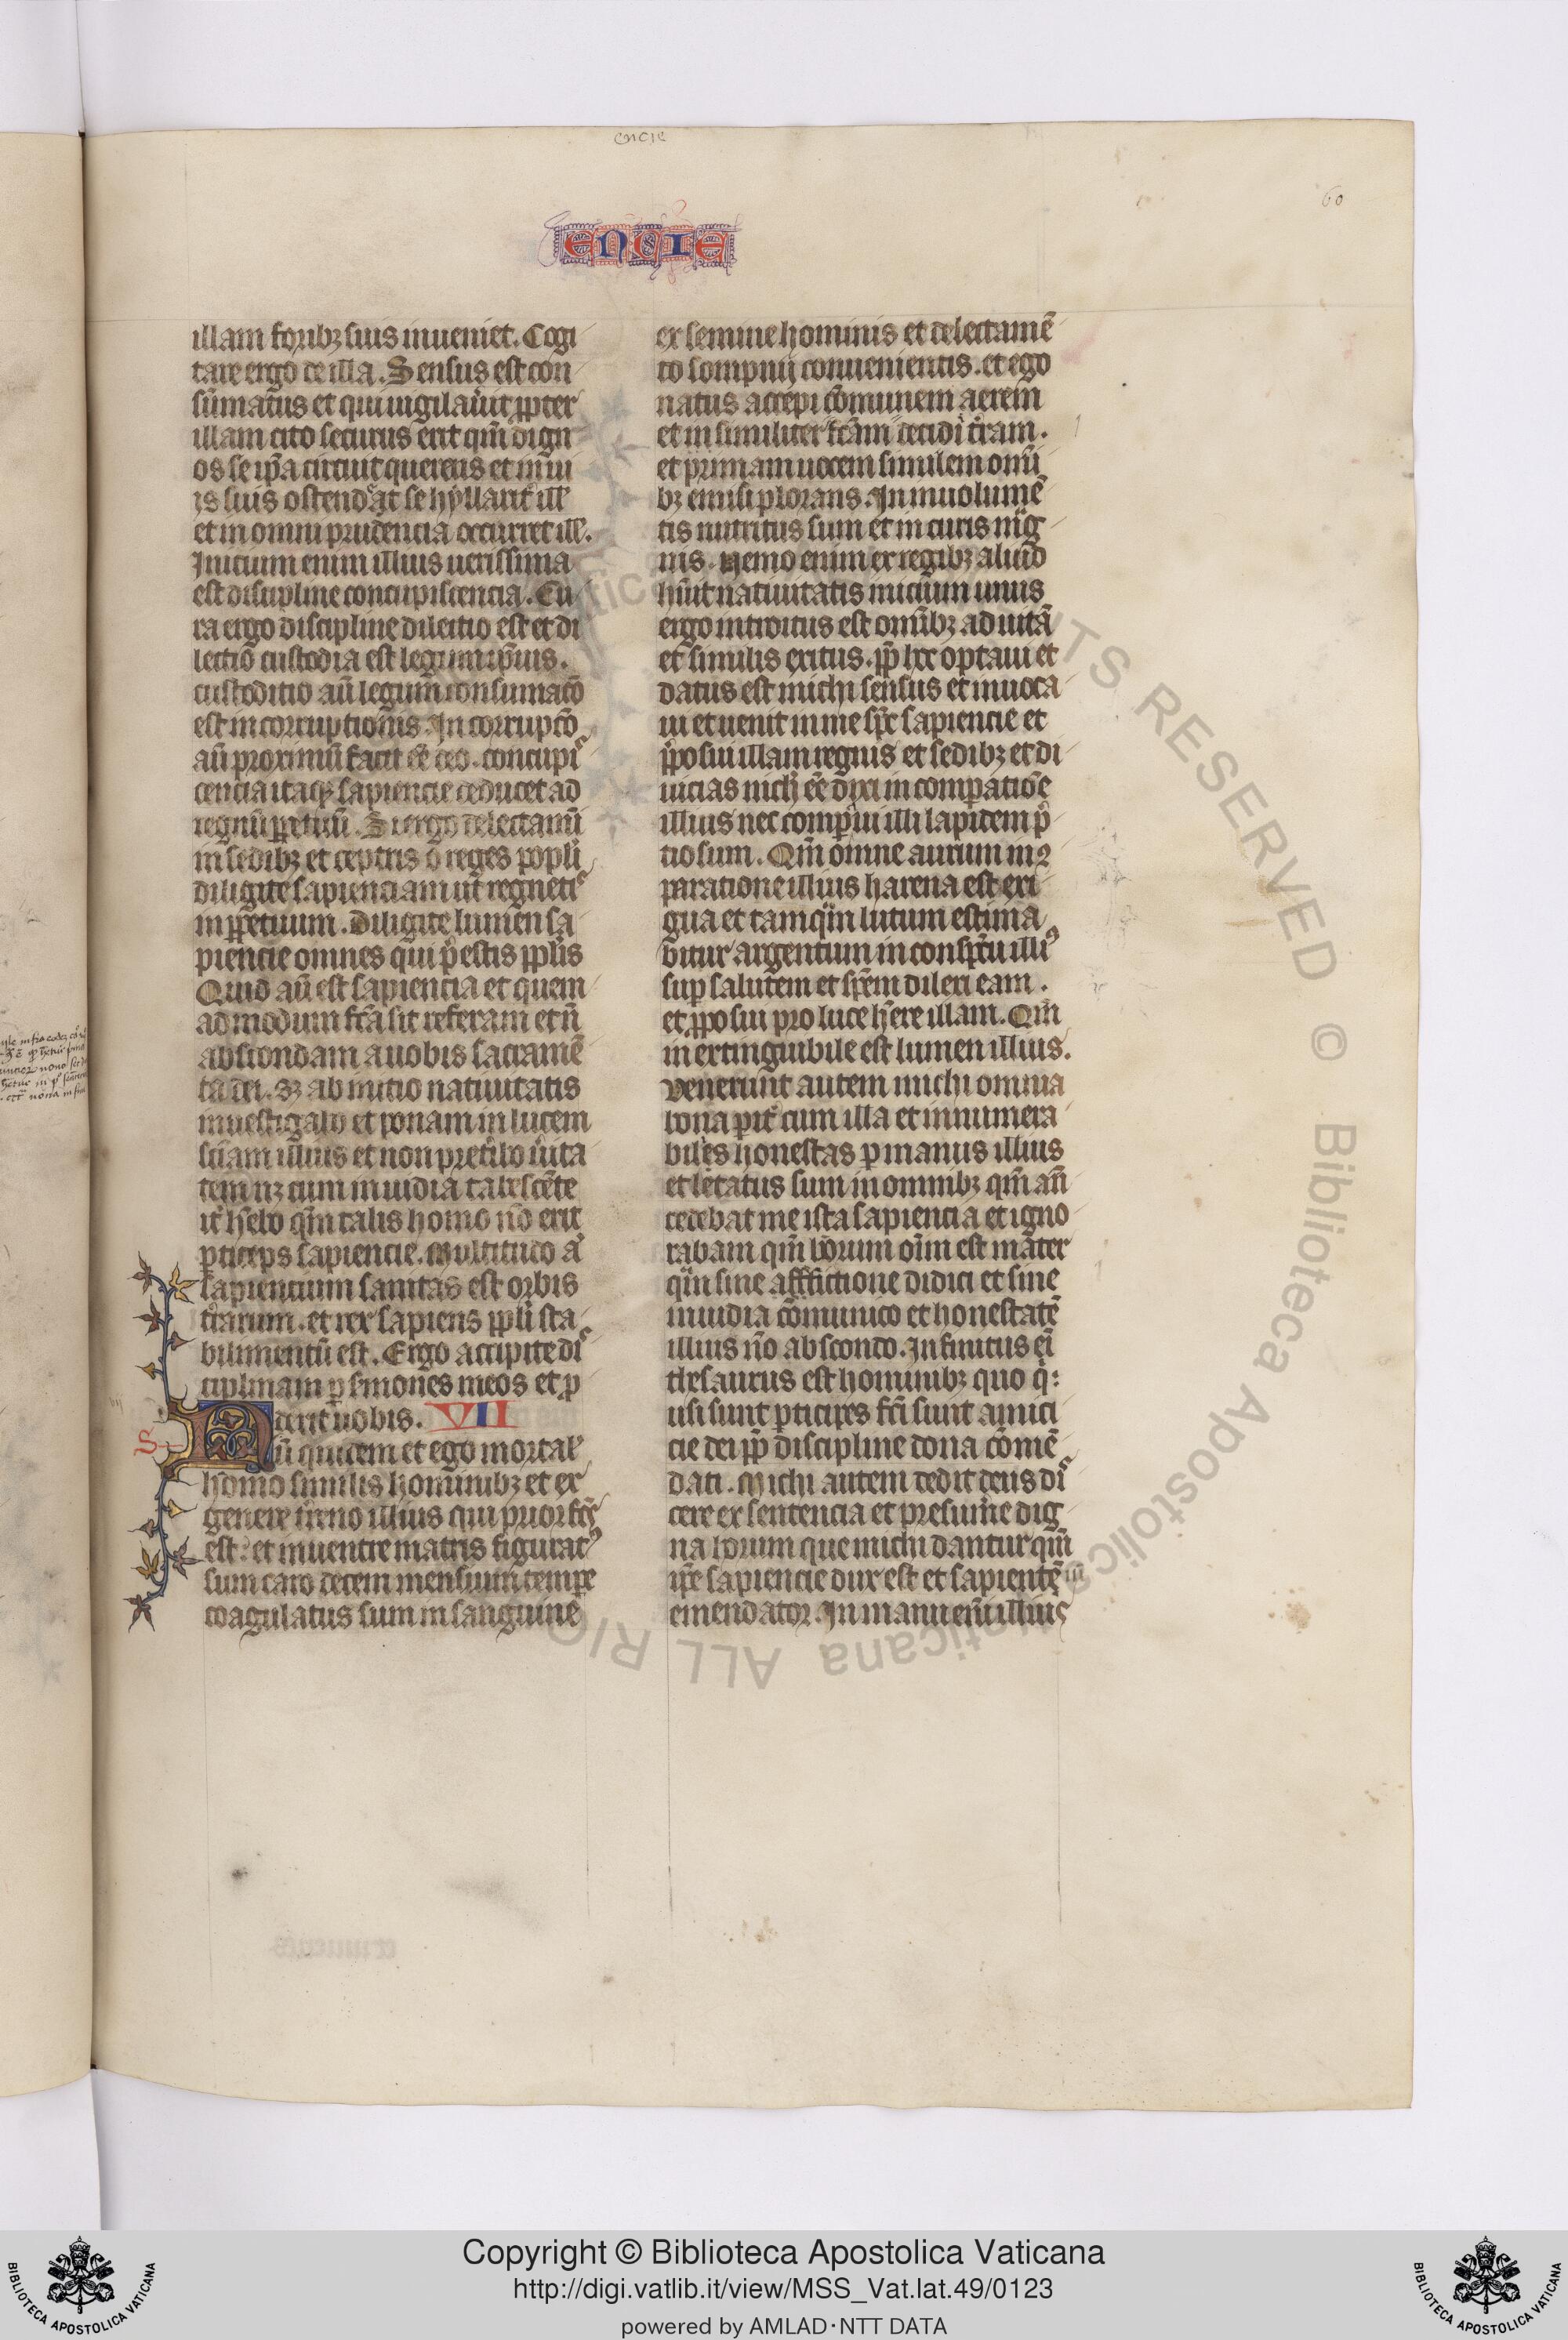 encie
60
ENCIE
illam foribꝫ suis inueniet. Cogi
tare ergo de illa. Sensus est con
sūmatus et qui uigilau̾it ꝓpter
illam cito securus erit qm̄ dign
os se ip̄a circuit querens et in ui
is suis ostendat se hyllarit̾ ill̾
et in omni prudencia occurret ill̾.
Inicium enim illius uerissima
est discipline concupiscencia. Cu
ra ergo discipline dilectio est et di
lectio custodia est legum ip̄ius.
custoditio au̅ legum consumaco̅
est incorruptionis. Incorrupco̅
au̅ proximu̅ facit e̅e deo. concupis
cencia itaqꝫ sapiencie deducet ad
regnu̅ ꝑpetuu̅. Si ergo delectamī
in sedibꝫ et ceptris o reges popli
diligite sapienciam ut regnetis
in ꝑpetuum. Diligite lumen sa
piencie omnes qui p̄estis ppl̄is
Quid au̅ est sapiencia et quem
admodum fc̄a sit referam et n̄
abscondam a uobis sacrame̅
ta dei. sꝫ ab inicio natiuitatis
inuestigabo et ponam in lucem
sc̄iam illius et non preteribo u̾ita
tem nꝫ cum inuidia tabesce̅te
it̾ h̄ebo qm̄ talis homo no̅ erit
ꝑticeps sapiencie. Multitudo a̅
sapiencium sanitas est orbis
t̾rarum. et rex sapiens ppl̄i sta
bilimentu̅ est. Ergo accipite dis
ciplinam ꝑ s̾mones meos et ꝓ
derit uobis. VII
S
Su̅ quidem et ego mortal̾
homo similis hominibꝫ et ex
genere t̾reno illius qui prior fc̄s
est. et in uentre matris figurat⁹
sum caro decem mensium tempe
coagulatus sum in sanguine
ex semine hominis et delectame̅
to sompnij conuenientis. et ego
natus accepi co̅munem aerem
et in similiter fc̄am decidi t̾ram.
et primam uocem similem omi̅
bꝫ emisi plorans. In inuolume̅
tis nutritus sum et in curis mag
nis. Nemo enim ex regibꝫ aliud
hu̅it natiuitatis inicium unus
ergo introitus est om̄ibꝫ ad uita̅
et similis exitus. ꝓp̄ hec optaui et
datus est michi sensus et inuoca
ui et uenit in me sp̄c sapiencie et
p̄posui illam regnis et sedibꝫ et di
uicias nich̾ e̅e dixi in comparatio̅e
illius nec comparaui illi lapidem p̄
tiosum. Qm̄ omne aurum in ꝯ
paratione illius harena est exi
gua et tamqua̅ lutum estima
bitur argentum in conspc̄u illi⁹
sup̄ salutem et spe̅m dilexi eam.
et ꝓposui pro luce h̄ere illam. Qm̄
inextinguibile est lumen illius.
Venerunt autem michi omnia
bona parit̾ cum illa et innumera
biles honestas ꝑ manus illius
et letatus sum in omnibꝫ qm̄ an̄
cedebat me ista sapiencia et igno
rabam qm̄ bonorum oi̅m est mater
qua̅ sine afflictione didici et sine
inuidia co̅munico et honestate̅
illius no̅ abscondo. Infinitus ei̅
thesaurus est hominibꝫ quo q̾:
usi sunt ꝑticipes fc̄i sunt amici
cie dei ꝓp̄ discipline dona co̅me̅
dati. Michi autem dedit deus di
cere ex sentencia et presum̾e dig
na horum que michi dantur qm̄
ip̄e sapiencie dux est et sapiente̅
emendator. In manu eni̅ illius
Copyright © Biblioteca Apostolica Vaticana
http://digi.vatlib.it/view/MSS_Vat.lat.49/0123
powered by AMLAD·NTT DATA
BIBLIOTECA APOSTOLICA VATICANA
BIBLIOTECA APOSTOLICA VATICANA
© Biblioteca Apostolica Vaticana ALL RIGHTS RESERVED